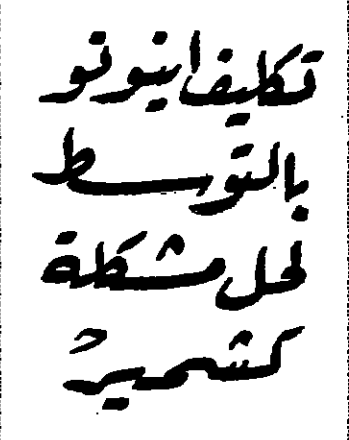 تكليف اينونو
بالتوسط
لحل مشكلة
كشمير